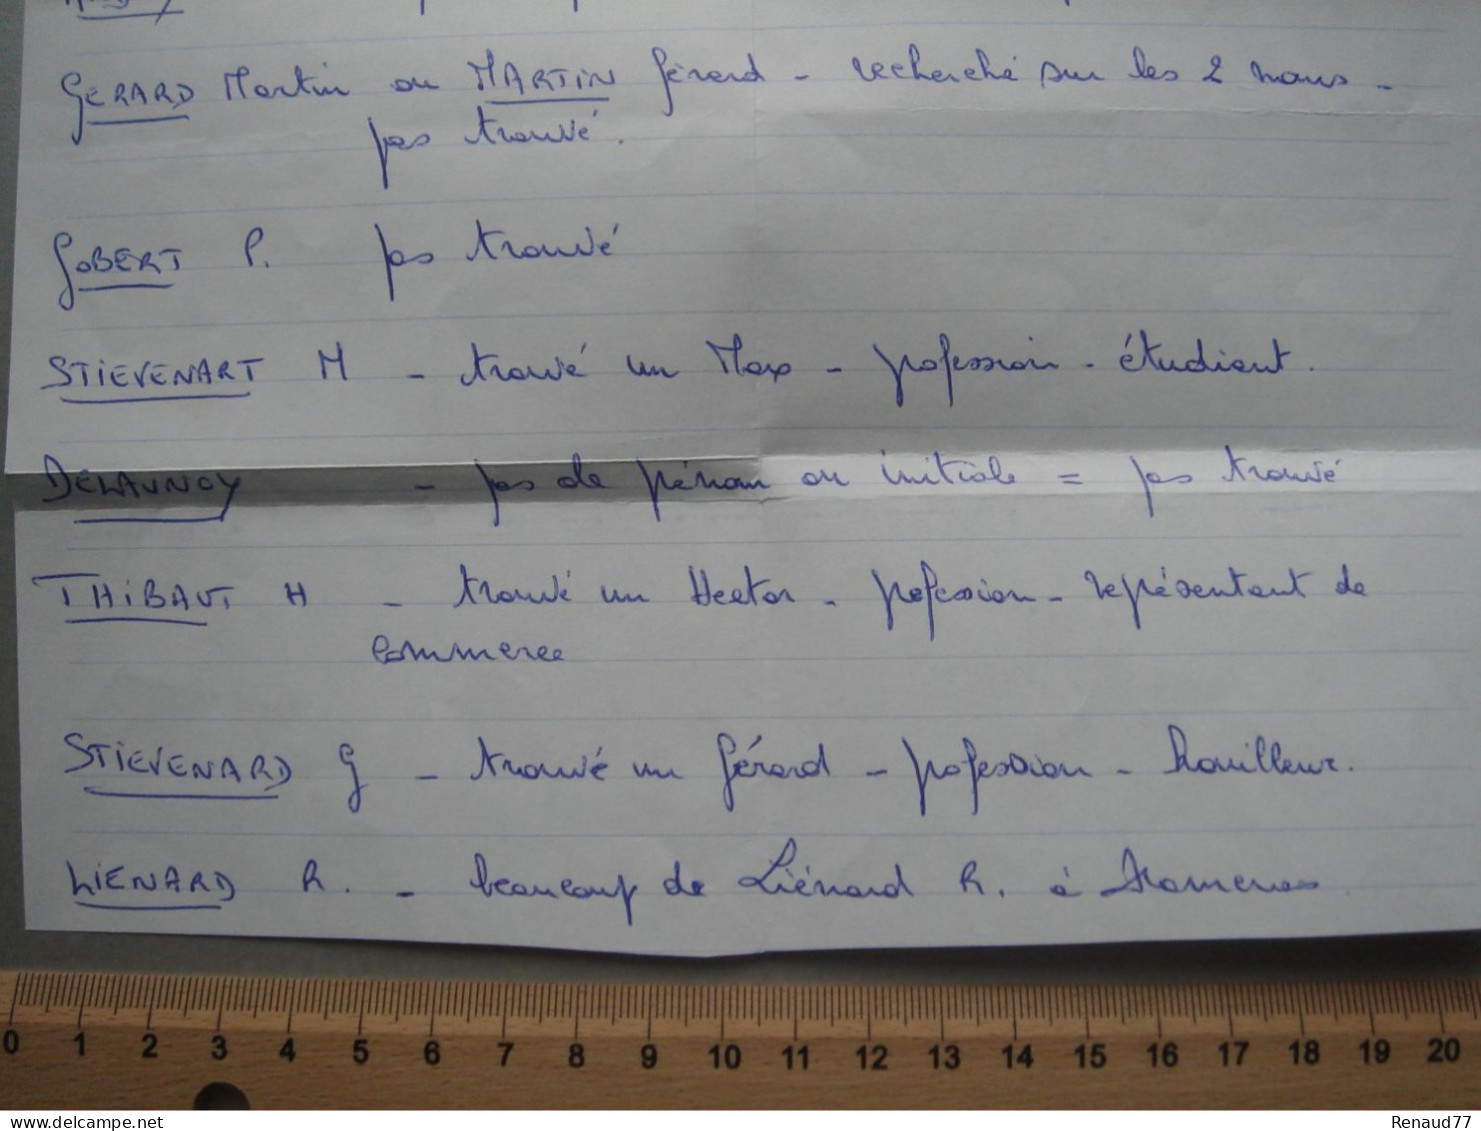 GERARD Martin ou MARTIN Gérard - recherché sur les 2 noms -
pas trouvé.
GOBERT P. pas trouvé
STIEVENART M - trouvé un Max - profession - étudiant.
DELAUNOY - pas de prénom ou initiale = pas trouvé
THIBAUT H - trouvé un Hector - profession - représentant de
commerce
STIEVENARD G - trouvé un Gérard - profession - houilleur.
LIENARD R. - beaucoup de Liénard R. à Frameries
0 1 2 3 4 5 6 7 8 9 10 11 12 13 14 15 16 17 18 19 20
delcampe.net
Renaud77